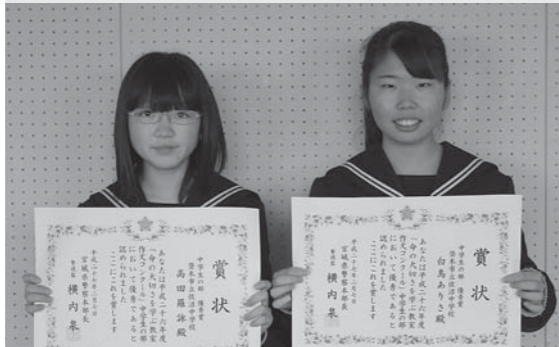 賞状
中学生の部 優秀賞
登米市立佐沼中学校
高田羅詠殿
あなたは平成二十六年度
「命の大切さを学ぶ教室
作文コンクール」中学生の部
において優秀であると
認められました
ここにこれを賞します
平成二十七年二月七日
宮城県警察本部長
警視長 横内泉
賞状
中学生の部 優秀賞
登米市立佐沼中学校
白鳥ありさ殿
あなたは平成二十六年度
「命の大切さを学ぶ教室
作文コンクール」中学生の部
において優秀であると
認められました
ここにこれを賞します
平成二十七年二月七日
宮城県警察本部長
警視長 横内泉